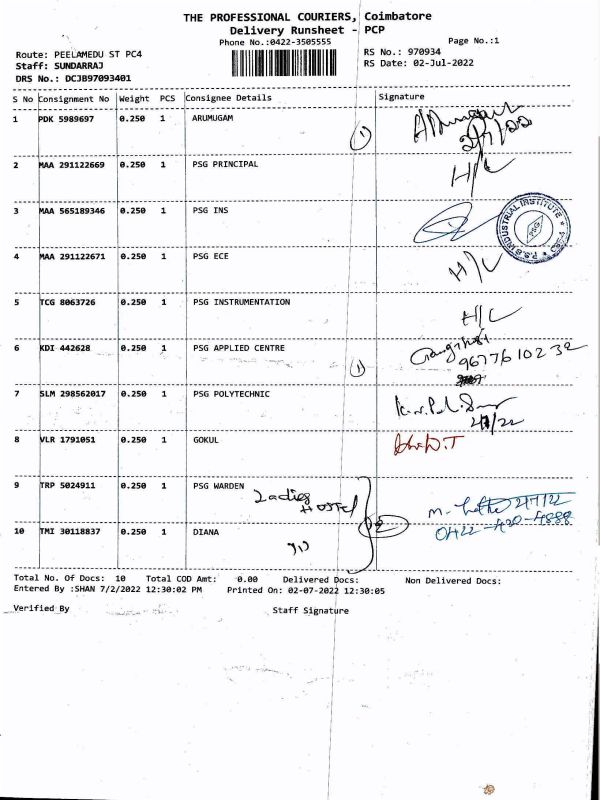 THE PROFESSIONAL COURIERS, Coimbatore
Delivery Runsheet - PCP
Phone No.:0422-3505555
Page No.:1
Route: PEELAMEDU ST PC4
RS No.: 970934
Staff: SUNDARRAJ
RS Date: 02-Jul-2022
DRS No.: DCJB97093401
S No Consignment No Weight PCS Consignee Details Signature
1 PDK 5989697 0.250 1 ARUMUGAM
2/7/22
1
2 MAA 291122669 0.250 1 PSG PRINCIPAL H/C
3 MAA 565189346 0.250 1 PSG INS
P.S.G INDUSTRIAL INSTITUTE
PSG
4 MAA 291122671 0.250 1 PSG ECE H/C
5 TCG 8063726 0.250 1 PSG INSTRUMENTATION H/C
6 KDI 442628 0.250 1 PSG APPLIED CENTRE
9677610232
1
7 SLM 298562017 0.250 1 PSG POLYTECHNIC
8 VLR 1791051 0.250 1 GOKUL
9 TRP 5024911 0.250 1 PSG WARDEN
Ladies Hostel
2/7/22
2
0422-430-4888
10 TMI 30118837 0.250 1 DIANA
Total No. Of Docs: 10 Total COD Amt: 0.00 Delivered Docs: Non Delivered Docs:
Entered By :SHAN 7/2/2022 12:30:02 PM Printed On: 02-07-2022 12:30:05
Verified By Staff Signature